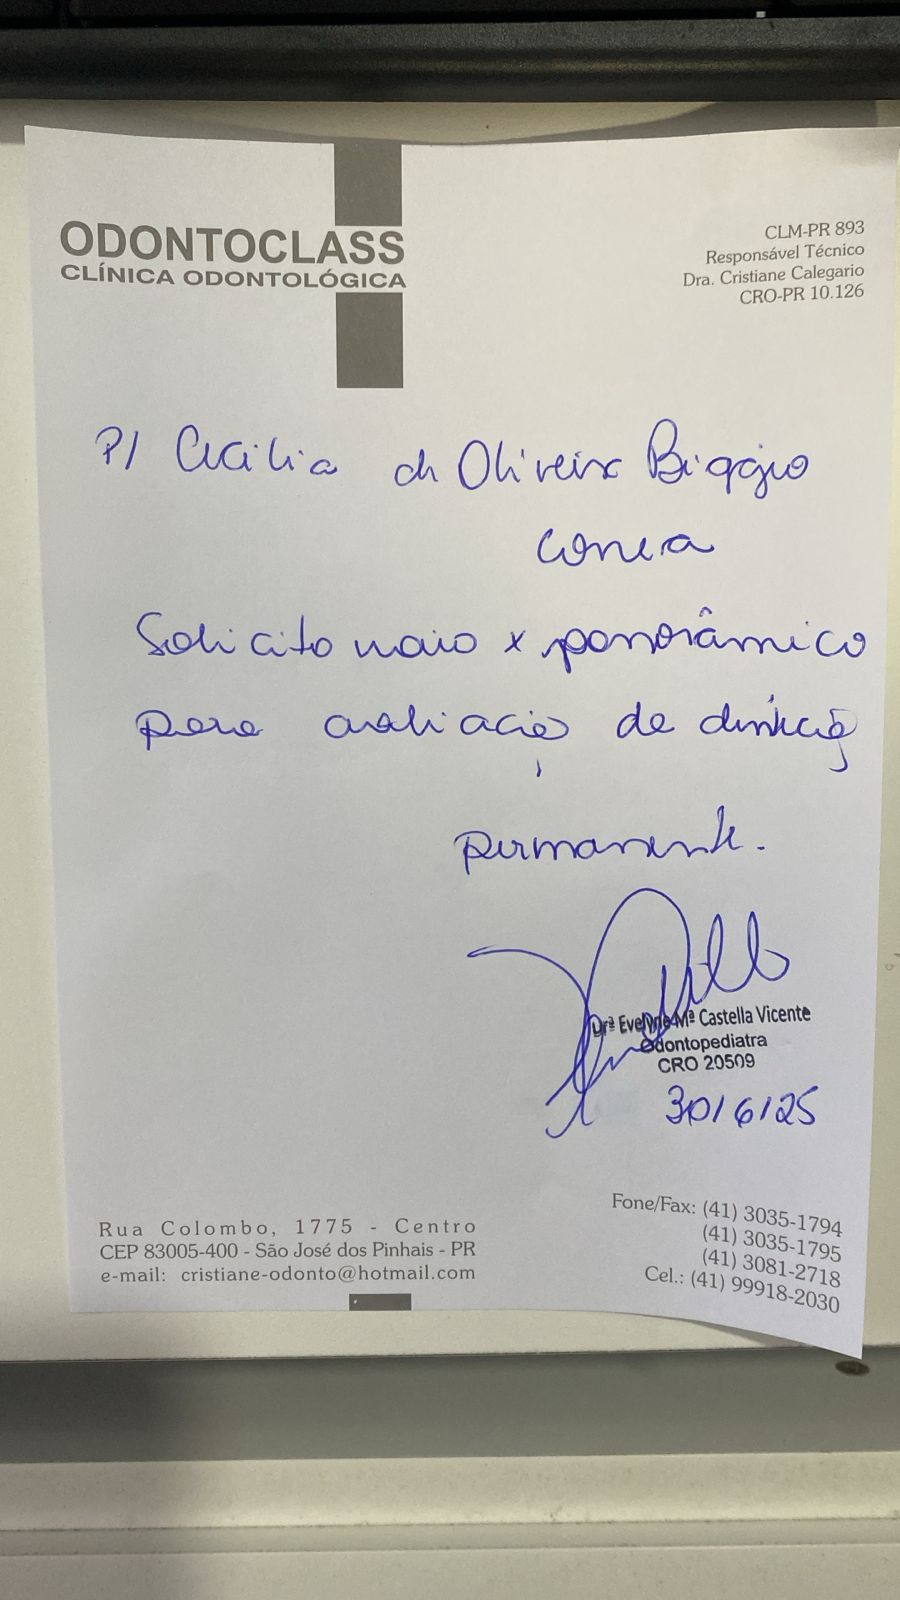 ODONTOCLASS
CLÍNICA ODONTOLÓGICA
CLM-PR 893
Responsável Técnico
Dra. Cristiane Calegario
CRO-PR 10.126
P/ Cecilia de Oliveira Biggio
Correa
Solicito raio x panorâmico
para avaliação de dentição
permanente.
Drª Evelyne Mª Castella Vicente
Odontopediatra
CRO 20509
30/6/25
Rua Colombo, 1775 - Centro
CEP 83005-400 - São José dos Pinhais - PR
e-mail: cristiane-odonto@hotmail.com
Fone/Fax: (41) 3035-1794
(41) 3035-1795
(41) 3081-2718
Cel.: (41) 99918-2030